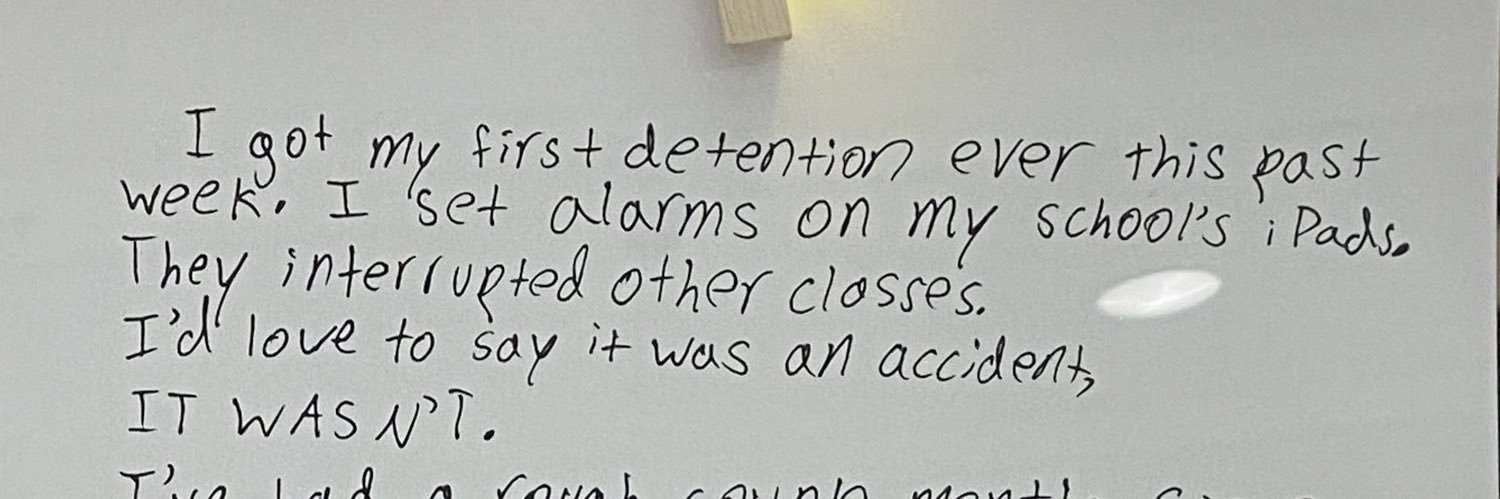 I got my first detention ever this past
week. I set alarms on my school's iPads.
They interrupted other classes.
I'd love to say it was an accident,
IT WASN'T.
I've had a rough